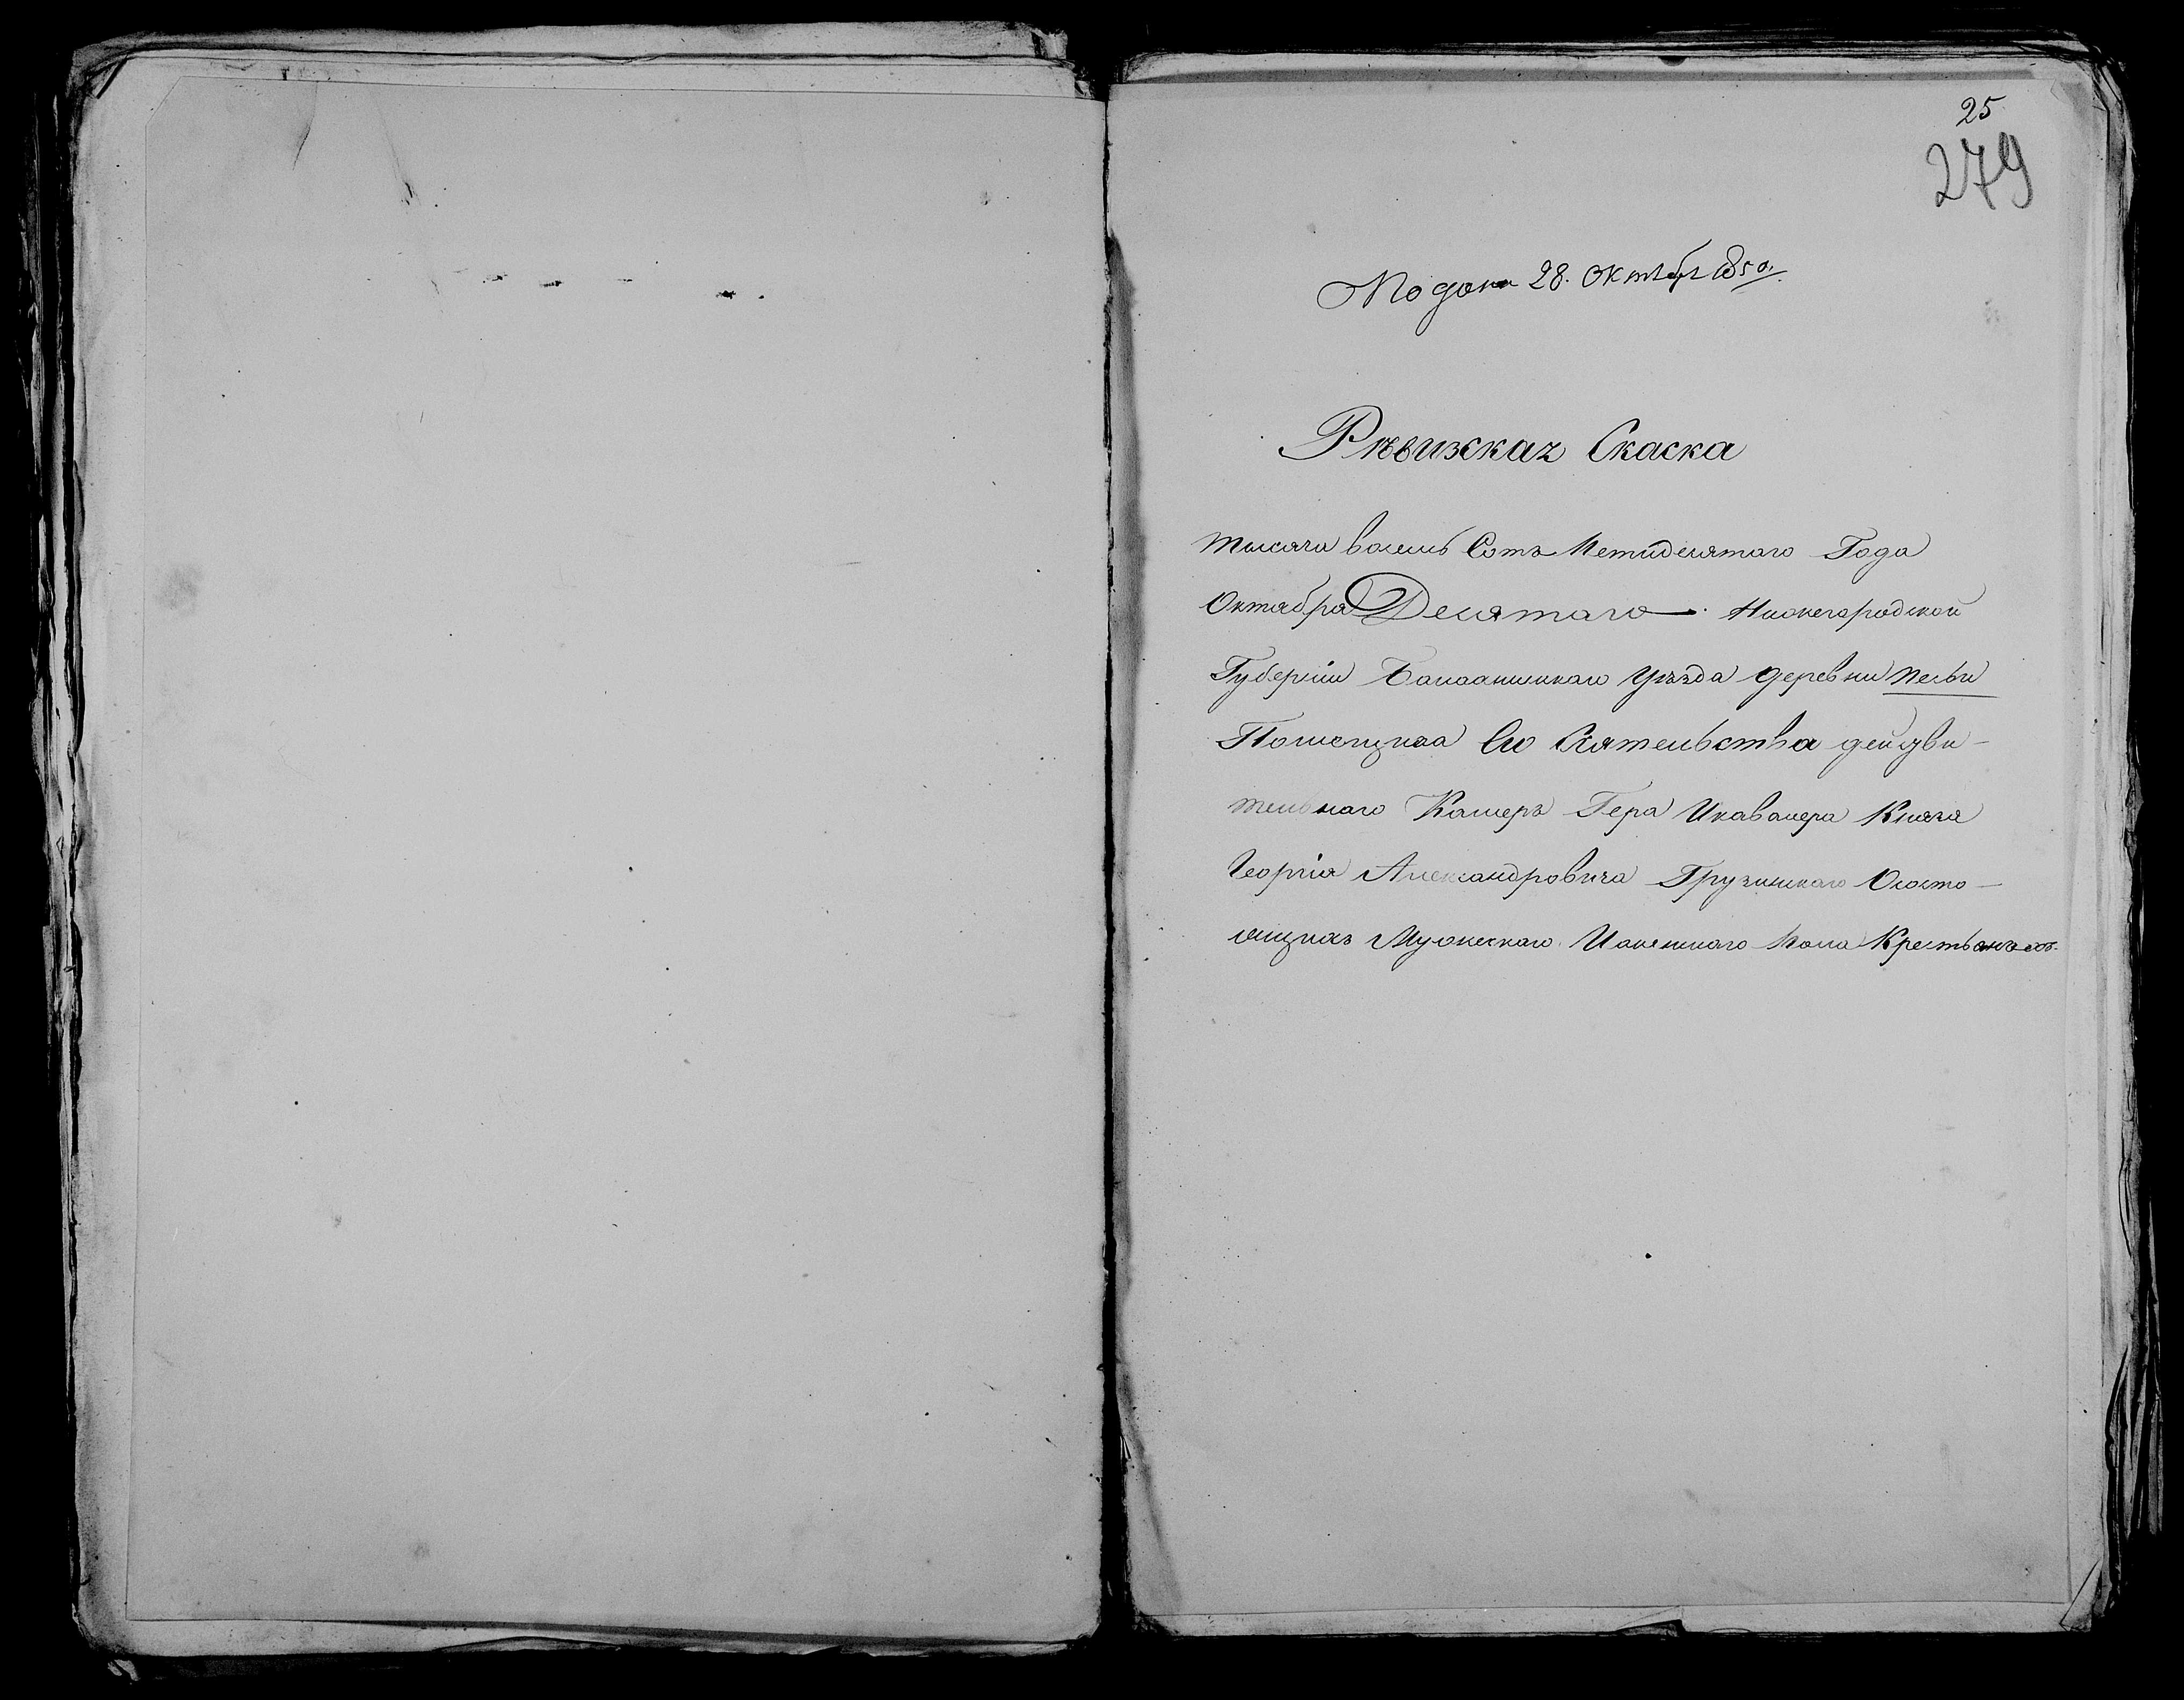 25
279
Подана 28. Октября 1850.
Рѣвизская Скаска
Тысяча восемь Сотъ Петидесятаго Года
Октября Десятаго Нижегородской
Губерніи Балахнинскаго Уѣзда деревни
Помещика Его Сіятельства действи-
тельнаго Камеръ Гера Икавалера Князя
Георгія Александровича Грузинскаго Ососто-
ящихъ Мужескаго Иженскаго Пола Крестьянехъ